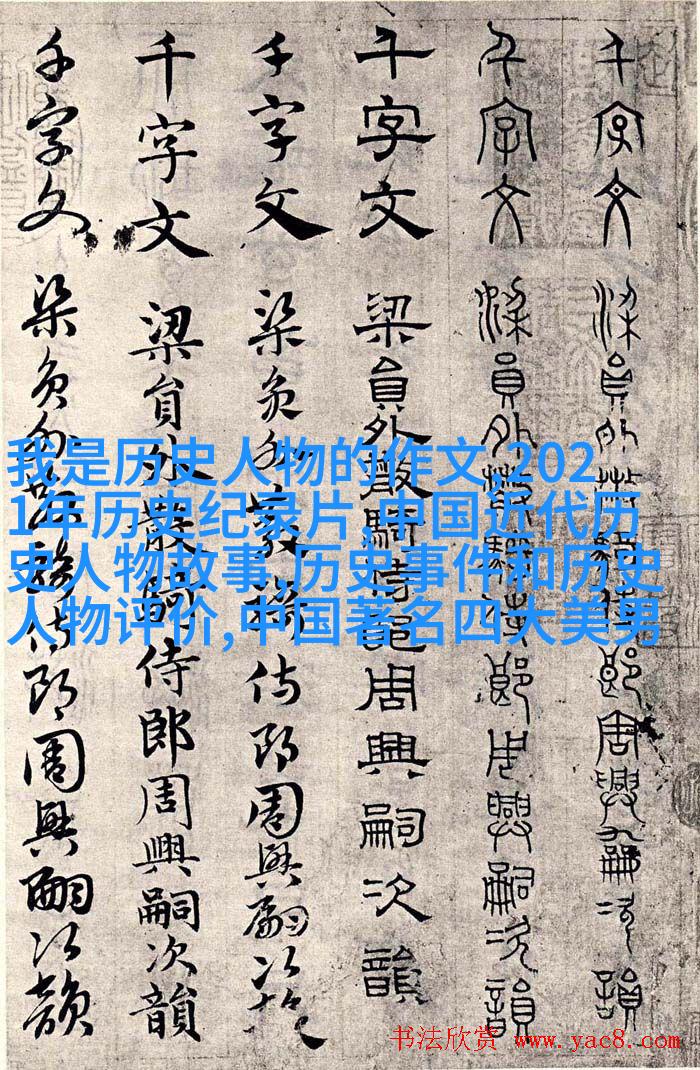 千字文 梁員外散騎侍郎周興嗣次韻
千字文 梁員外散騎侍郎周興嗣次韻
千字文 梁員外散騎侍郎周興嗣次韻
千字文 梁員外散騎侍郎周興嗣次韻
千字文 梁員外散騎侍郎周興嗣次韻
千字文 梁員外散騎侍郎周興嗣次韻
我是历史人物的作文,202
1年历史纪录片,中国近代历
史人物故事,历史事件和历史
人物评价,中国著名四大美男
书法欣赏 www.yac8.com